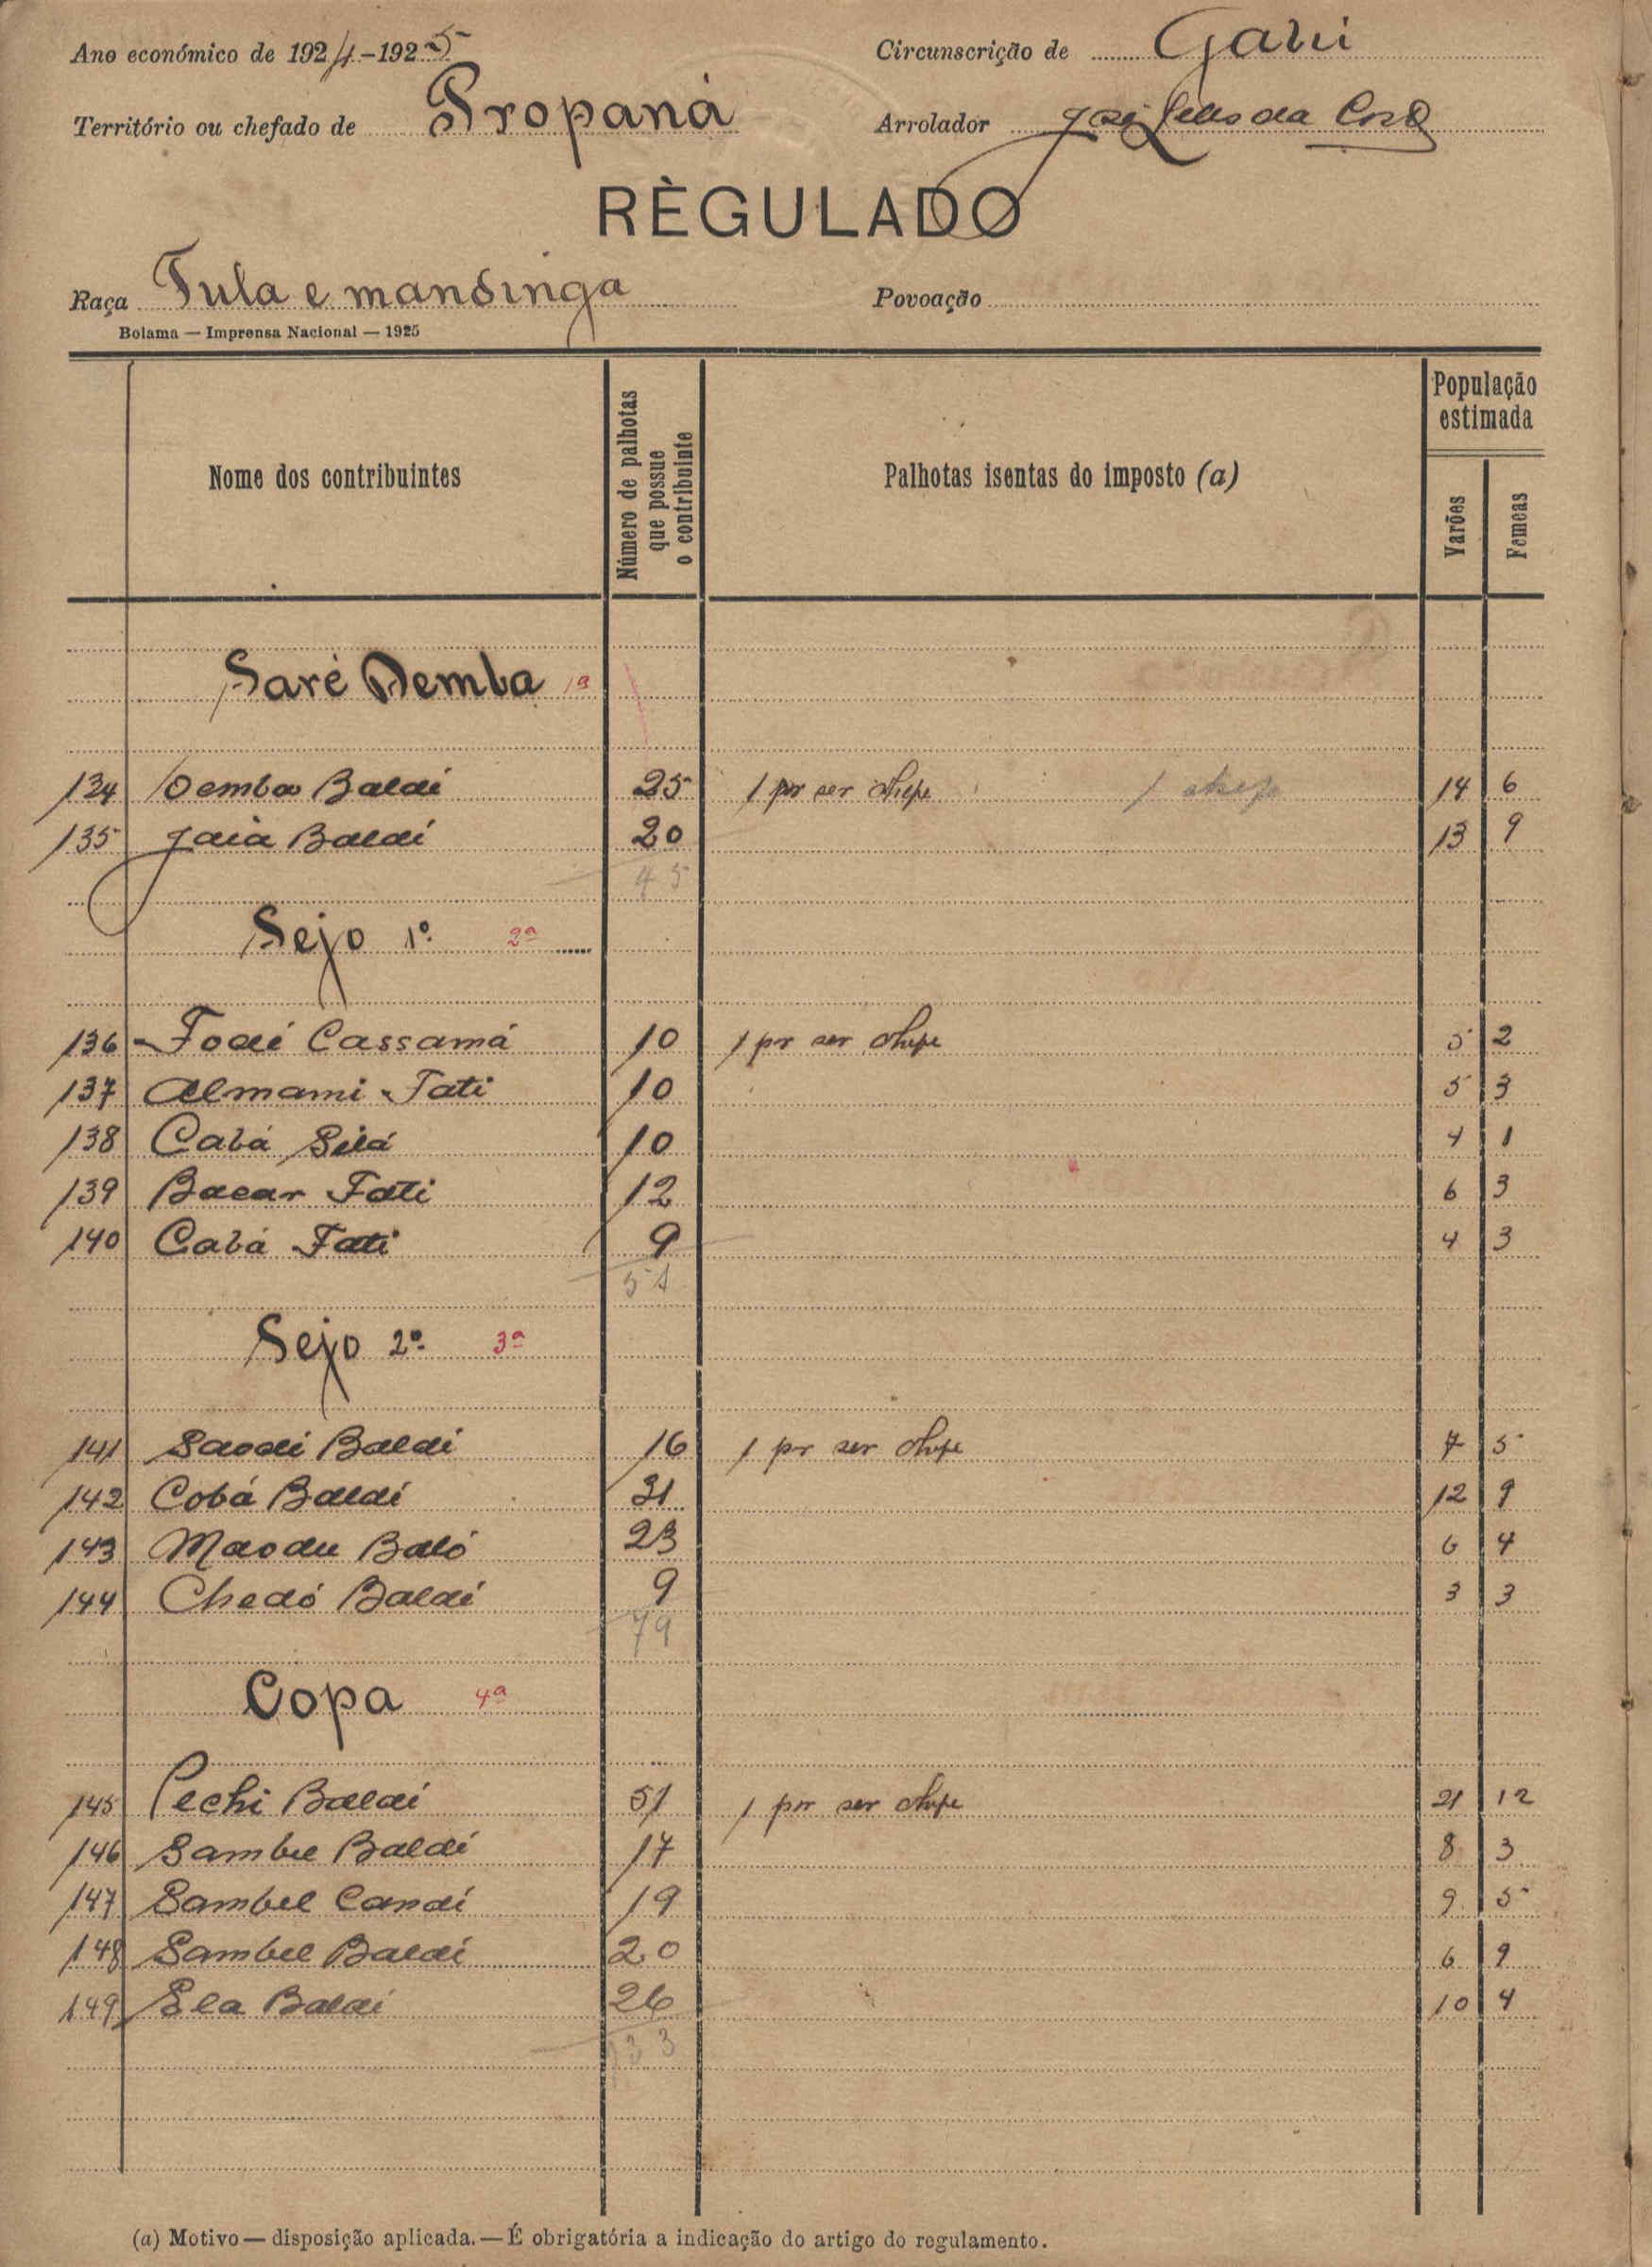 Ano económico de 1924-1925
Circunscrição de Gabú
Território ou chefado de Propaná
Arrolador José da Costa
RÈGULADO
Raça Fula e mandinga
Povoação
Bolama — Imprensa Nacional — 1925
Nome dos contribuintes
Número de palhotas que possue o contribuinte
Palhotas isentas do imposto (a)
População estimada
Varões
Femeas
Saré Demba 1ª
134 Demba Baldé 25 1 por ser chefe 1 chefe 14 6
135 Jaia Baldé 20 13 9
45
Sejo 1º 2ª
136 Fodé Cassamá 10 1 por ser chefe 5 2
137 Almami Fati 10 5 3
138 Cabá Silá 10 4 1
139 Bacar Fati 12 6 3
140 Cabá Fati 9 4 3
51
Sejo 2º 3ª
141 Baldé 16 1 por ser chefe 7 5
142 Cobá Baldé 31 12 9
143 Mandu Baló 23 6 4
144 Chedó Baldé 9 3 3
79
Copa 4ª
145 Pechi Baldé 51 1 por ser chefe 21 12
146 Sambu Baldé 17 8 3
147 Sambel Candé 19 9 5
148 Sambel Baldé 20 6 9
149 Ela Baldé 26 10 4
133
(a) Motivo — disposição aplicada. — É obrigatória a indicação do artigo do regulamento.